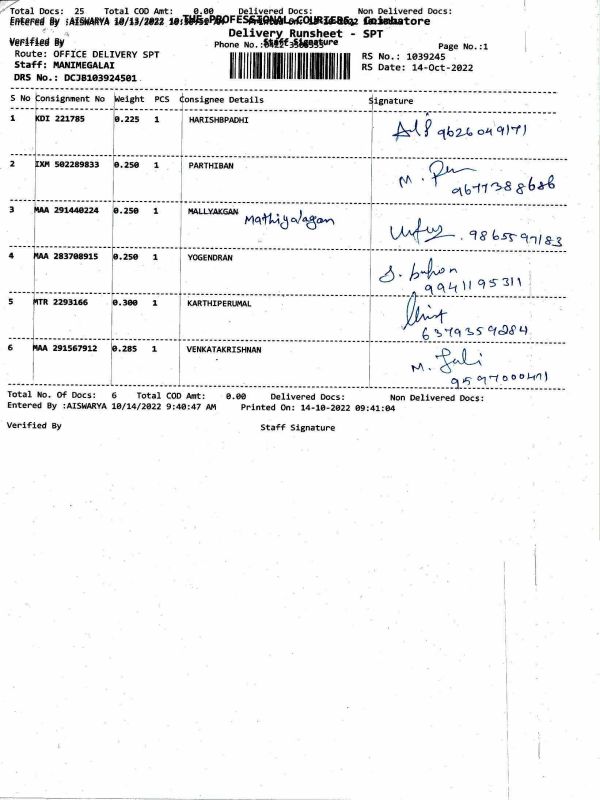 Total Docs: 25 Total COD Amt: 0.00 Delivered Docs: Non Delivered Docs:
Entered By :AISWARYA 10/13/2022
THE PROFESSIONAL COURIERS, Coimbatore
Delivery Runsheet - SPT
Verified By Staff Signature
Phone No.: Page No.:1
Route: OFFICE DELIVERY SPT RS No.: 1039245
Staff: MANIMEGALAI RS Date: 14-Oct-2022
DRS No.: DCJB103924501
S No Consignment No Weight PCS Consignee Details Signature
1 KDI 221785 0.225 1 HARISHBPADHI 9626049171
2 IXM 502289833 0.250 1 PARTHIBAN M.
9677388686
3 MAA 291440224 0.250 1 MALLYAKGAN
Mathiyalagan
9865597183
4 MAA 283708915 0.250 1 YOGENDRAN
9941195311
5 MTR 2293166 0.300 1 KARTHIPERUMAL
6379359284
6 MAA 291567912 0.285 1 VENKATAKRISHNAN M.
9597000471
Total No. Of Docs: 6 Total COD Amt: 0.00 Delivered Docs: Non Delivered Docs:
Entered By :AISWARYA 10/14/2022 9:40:47 AM Printed On: 14-10-2022 09:41:04
Verified By Staff Signature